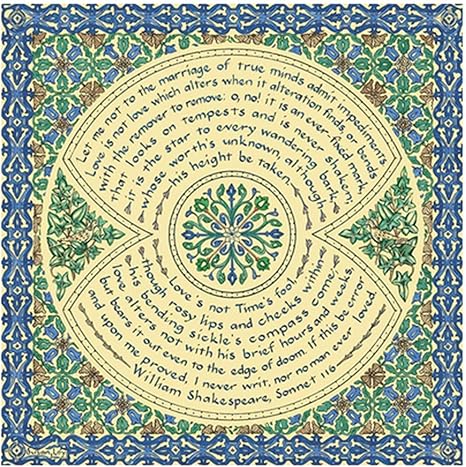 Let me not to the marriage of true minds admit impediments.
Love is not love which alters when it alteration finds, or bends
with the remover to remove: O, no! it is an ever fixed mark,
that looks on tempests and is never shaken;
it is the star to every wandering bark,
whose worth's unknown, although
his height be taken.
Love's not Time's fool,
though rosy lips and cheeks within
his bending sickle's compass come;
love alters not with his brief hours and weeks,
but bears it out even to the edge of doom. If this be error
and upon me proved, I never writ, nor no man ever loved.
William Shakespeare, Sonnet 116